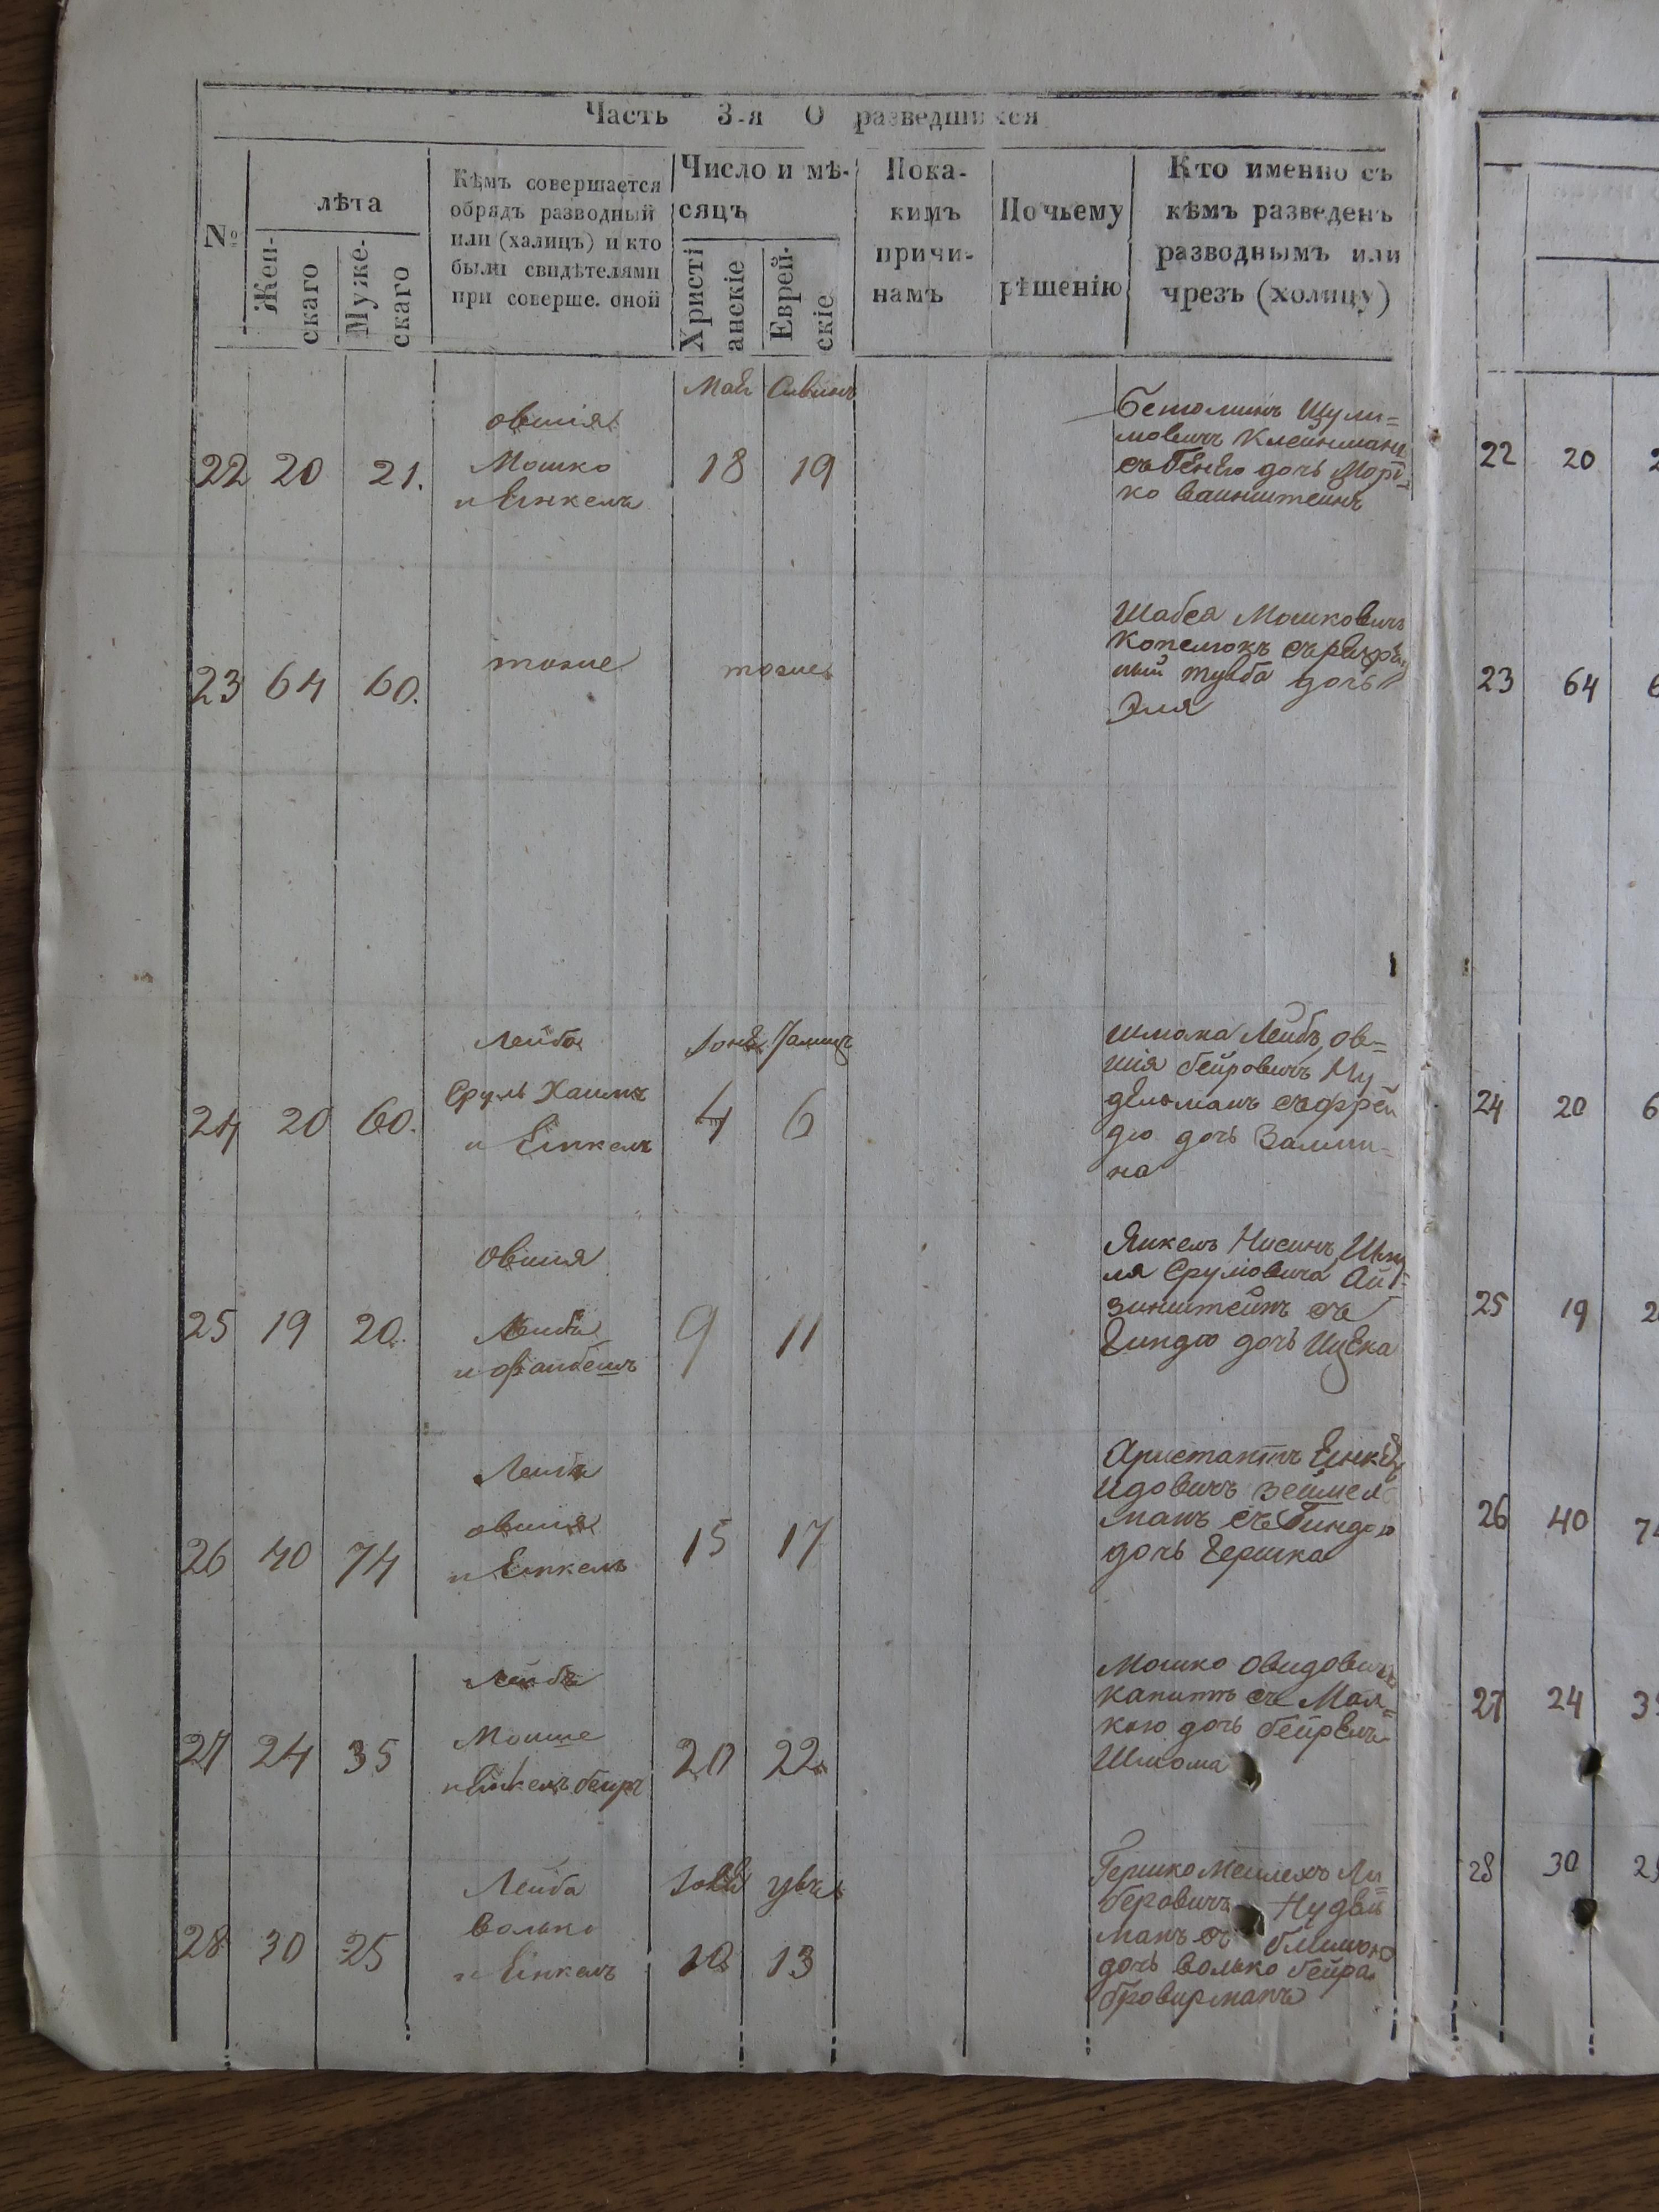 Часть 3-я О разведшихся
№
лѣта
Жен-
скаго
Муже-
скаго
Кѣмъ совершается
обрядъ разводный
или (халицъ) и кто
были свидѣтелями
при соверше. оной
Число и мѣ-
сяцъ
Христі
анскіе
Еврей-
скіе
Пока-
кимъ
причи-
намъ
Почьему
рѣшенію
Кто именно съ
кѣмъ разведенъ
разводнымъ или
чрезъ (холицу)
22 20 21.
овшія
Мошко
и Еинкель
Маія Сивинъ
18 19
Шули-
мовичъ Клейнманъ
дочьМорд-
ко Ваинштеинъ
23 64 60.
тоже
тоже
Шабся Мошковичъ
дочь
Эля
24 20 60.
Лейба
Сруль Хаимъ
и Еинкель
4 6
Шлома Лейбъ ов-
шія бейровичъ Ну
дельманъ съ Фрей
дю дочь Залми-
на
25 19 20.
Овшия
Леиба
и Файбешъ
9 11
Янкель Нисинъ Шму
ля Срулювича Ай-
зинштейнъ съ
Гиндю дочь Ицека
26 40 74
Леиба
овшия
и Еинкель
15 17
Аристантъ
Идовичъ Зейшел
манъ съ Гиндою
дочь Гершка
27 24 35
Лейба
Моише
и Еинкель беиръ
20 22
Мошко Овидовичъ
капитъ съ Мал-
кою дочь бейрель
Шлома
28 30 25
Лейба
Волько
и Еинкель
10 13
Гершко Меилехъ Ли-
беровичъ Нудель
манъ съ
дочь Волько бейра
бровирманъ
22 20 2
23 64 6
24 20 6
25 19 2
26 40 7
27 24 3
28 30 2